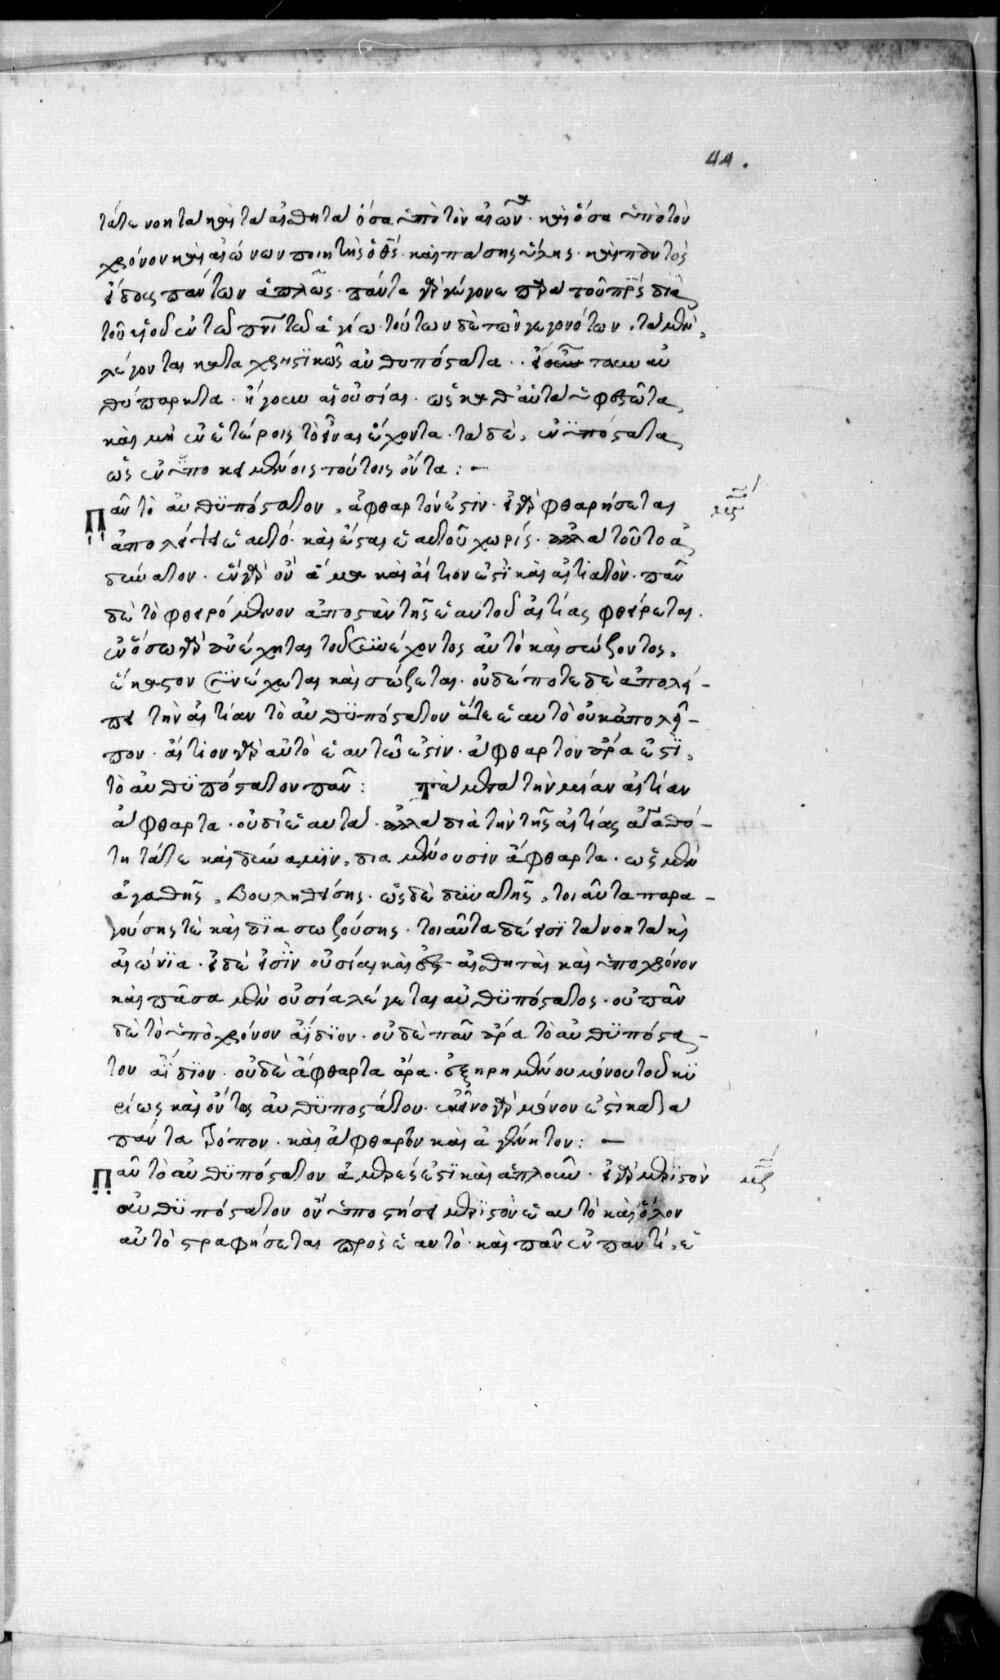 44.
τά τε νοητὰ καὶ τὰ αἰσθητὰ ὅσα ὑπὸ τὸν αἰῶνα· καὶ ὅσα ὑπὸ τὸν
χρόνον καὶ αἰώνων ποιητὴς ὁ θς· καὶ πάσης ὕλης· καὶ παντὸς
εἴδους πάντων ἁπλῶς· πάντα γὰρ γέγονε παρὰ τοῦ πρς διὰ
τοῦ υἱοῦ ἐν τῶ πνι τῶ ἁγίω· τούτων δὲ τῶν γεγονότων, τὰ μὲν
λέγονται καταχρηστικῶς αὐθυπόστατα· αὐ
θύπαρκτα· ἤγουν αἱ οὐσίαι· ὡς καθ' αὑτὰ ὑφεστῶτα,
καὶ μὴ ἐν ἑτέροις τὸ εἶναι ἔχοντα· τὰ δὲ, ἐνϋπόστατα
ὡς ἐν ὑποκειμένοις τούτοις ὄντα: –
Πᾶν τὸ αὐθϋπόστατον, ἄφθαρτόν ἐστιν· εἰ γὰρ φθαρήσεται
ἀπολείψει ἑαυτό· καὶ ἔσται ἑαυτοῦ χωρίς· ἀλλὰ τοῦτο ἀ
δύνατον· ἓν γὰρ ὂν ἅμα καὶ αἴτιον ἐστὶ καὶ αἰτιατὸν· πᾶν
δὲ τὸ φθειρόμενον ἀποστὰν τῆς ἑαυτοῦ αἰτίας φθείρεται·
ἐν ὅσω γὰρ ἀνέχηται τοῦ συνέχοντος αὐτό καὶ σώζοντος,
ἕκαστον συνέχεται καὶ σώζεται· οὐδέποτε δὲ ἀπολεί-
πει τὴν αἰτίαν τὸ αὐθϋπόστατον ἅτε ἑαυτὸ οὐκ ἀπολεῖ-
πον· αἴτιον γὰρ αὐτὸ ἑαυτῶ ἐστιν· ἄφθαρτον ἄρα ἐστὶ,
τὸ αὐθϋπόστατον πᾶν: τὰ μετὰ τὴν μίαν αἰτίαν
ἄφθαρτα· οὐ δι' ἑαυτὰ· ἀλλὰ διὰ τὴν τῆς αἰτίας ἀγαθό-
τητά τε καὶ δύναμιν, διαμένουσιν ἄφθαρτα· ὡς μὲν
ἀγαθῆς, βουληθείσης· ὡς δὲ δυνατῆς, τοιαῦτα παρα-
γούσης τὲ καὶ διασωζούσης· τοιαῦτα δέ εἰσι τὰ νοητὰ καὶ
αἰώνϊα· εἰ δὲ εἰσὶν οὐσίαι καὶ αἰσθηταὶ καὶ ὑπὸ χρόνον
καὶ πᾶσα μὲν οὐσία λέγεται αὐθϋπόστατος· οὐ πᾶν
δὲ τὸ ὑπὸ χρόνον ἀΐδϊον· οὐδὲ πᾶν ἄρα τὸ αὐθϋπόστα-
τον ἀΐδϊον· οὐδὲ ἄφθαρτα ἄρα· ἐξηρημένου μόνου τοῦ κυ
ρίως καὶ ὄντως αὐθϋποστάτου· ἐκεῖνο γὰρ μόνον ἐστὶ κατὰ
πάντα τρόπον· καὶ ἄφθαρτον καὶ ἀγένητον: –
Πᾶν τὸ αὐθϋπόστατον ἀμερές ἐστϊ καὶ ἁπλοῦν· εἰ γὰρ μεριστὸν
αὐθϋπόστατον ὂν ὑποστήσει μεριστὸν ἑαυτὸ καὶ ὅλον
αὐτὸ στραφήσεται πρὸς ἑαυτὸ· καὶ πᾶν ἐν παντὶ ἑ